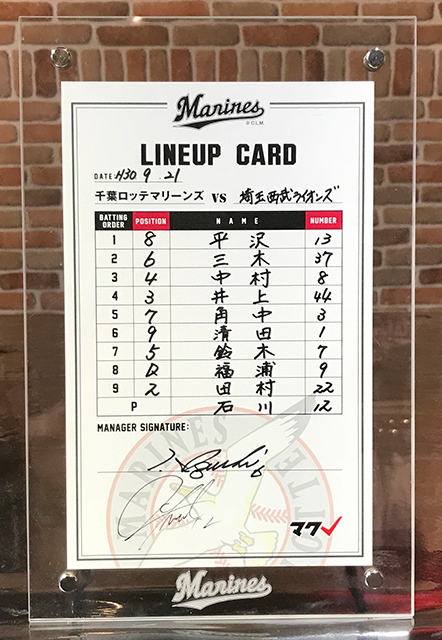 Marines
© C.L.M.
LINEUP CARD
DATE: H30 9 . 21
千葉ロッテマリーンズ VS 埼玉西武ライオンズ
BATTING ORDER POSITION NAME NUMBER
1 8 平沢 13
2 6 三木 37
3 4 中村 8
4 3 井上 44
5 7 角中 3
6 9 清田 1
7 5 鈴木 7
8 D 福浦 9
9 2 田村 22
P 石川 12
MANAGER SIGNATURE:
マクレ
Marines